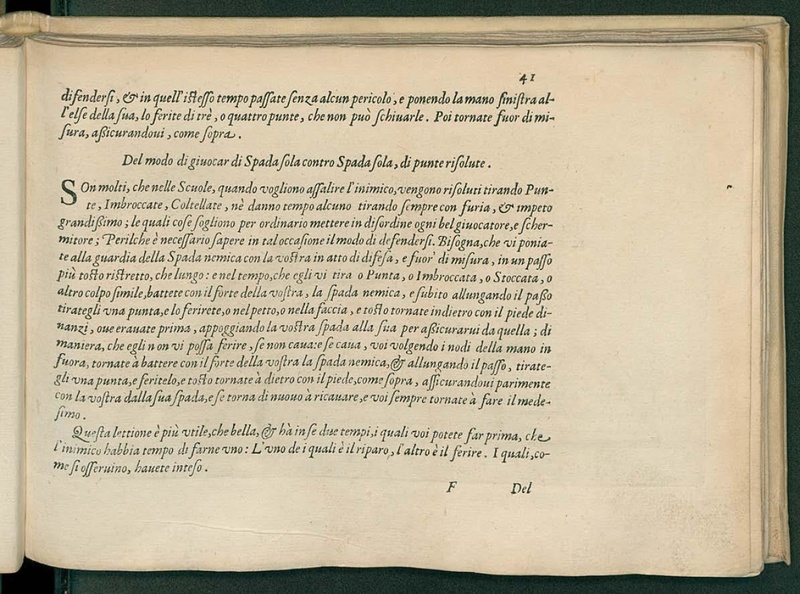 41
difendersi, & in quell'istesso tempo passate senza alcun pericolo, e ponendo la mano sinistra al-
l'else della sua, lo ferite di trè, o quattro punte, che non può schiuarle. Poi tornate fuor di mi-
sura, aßicurandoui, come sopra.
Del modo di giuocar di Spada sola contro Spada sola, di punte risolute.
SOn molti, che nelle Scuole, quando vogliono assalire l'inimico, vengono risoluti tirando Pun-
te, Imbroccate, Coltellate, nè danno tempo alcuno tirando sempre con furia, & impeto
grandißimo; le quali cose sogliono per ordinario mettere in disordine ogni bel giuocatore, e scher-
mitore; Perilche è necessario sapere in tal occasione il modo di defendersi. Bisogna, che vi ponia-
te alla guardia della Spada nemica con la vostra in atto di difesa, e fuor di misura, in un passo
più tosto ristretto, che lungo: e nel tempo, che egli vi tira o Punta, o Imbroccata, o Stoccata, o
altro colpo simile, battete con il forte della vostra, la spada nemica, e subito allungando il paßo
tirategli vna punta, e lo ferirete, o nel petto, o nella faccia, e tosto tornate indietro con il piede di-
nanzi, oue erauate prima, appoggiando la vostra spada alla sua per aßicurarui da quella; di
maniera, che egli non vi possa ferire, se non caua: e se caua, voi volgendo i nodi della mano in
fuora, tornate à battere con il forte della vostra la spada nemica, & allungando il passo, tirate-
gli vna punta, e feritelo, e tosto tornate à dietro con il piede, come sopra, assicurandoui parimente
con la vostra dalla sua spada, e se torna di nuouo à ricauare, e voi sempre tornate à fare il mede-
simo.
Questa lettione è più vtile, che bella, & hà in se due tempi, i quali voi potete far prima, che
l'inimico habbia tempo di farne vno: L'vno de i quali è il riparo, l'altro è il ferire. I quali, co-
me si osseruino, hauete inteso.
F Del